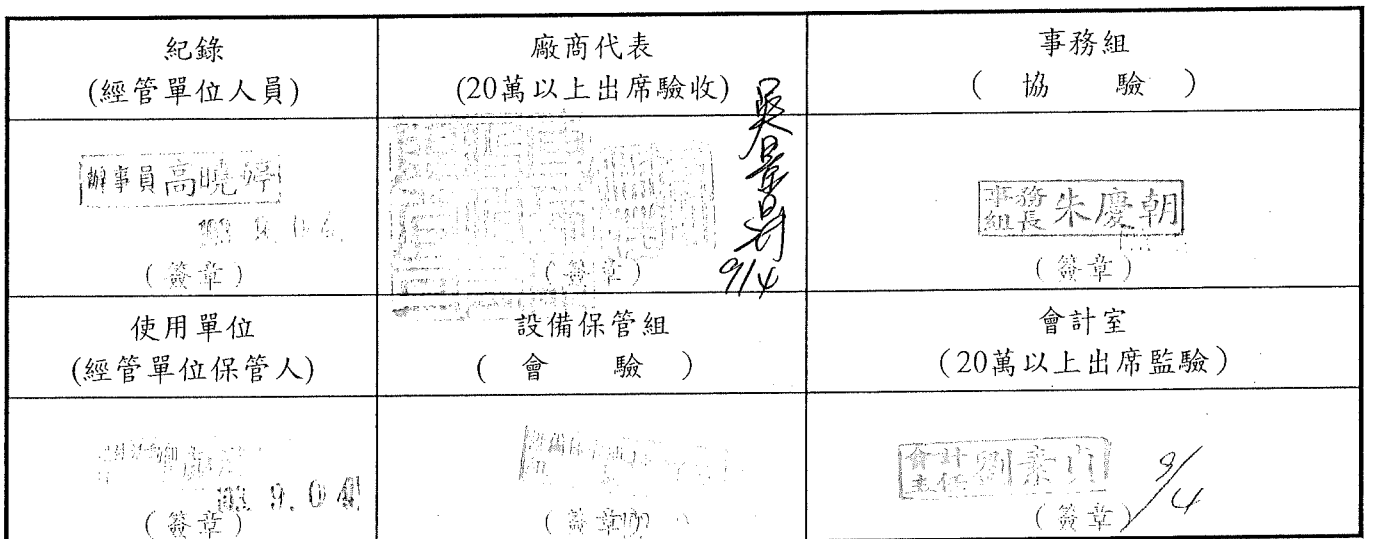 紀錄
(經管單位人員)
廠商代表
(20萬以上出席驗收)
事務組
( 協 驗 )
辦事員高曉婷
(簽章)
(簽章)
9/4
事務
組長 朱慶朝
(簽章)
使用單位
(經管單位保管人)
設備保管組
( 會 驗 )
會計室
(20萬以上出席監驗)
103. 9. 04
(簽章)
(簽章)
會計
主任 劉素貞
9/4
(簽章)